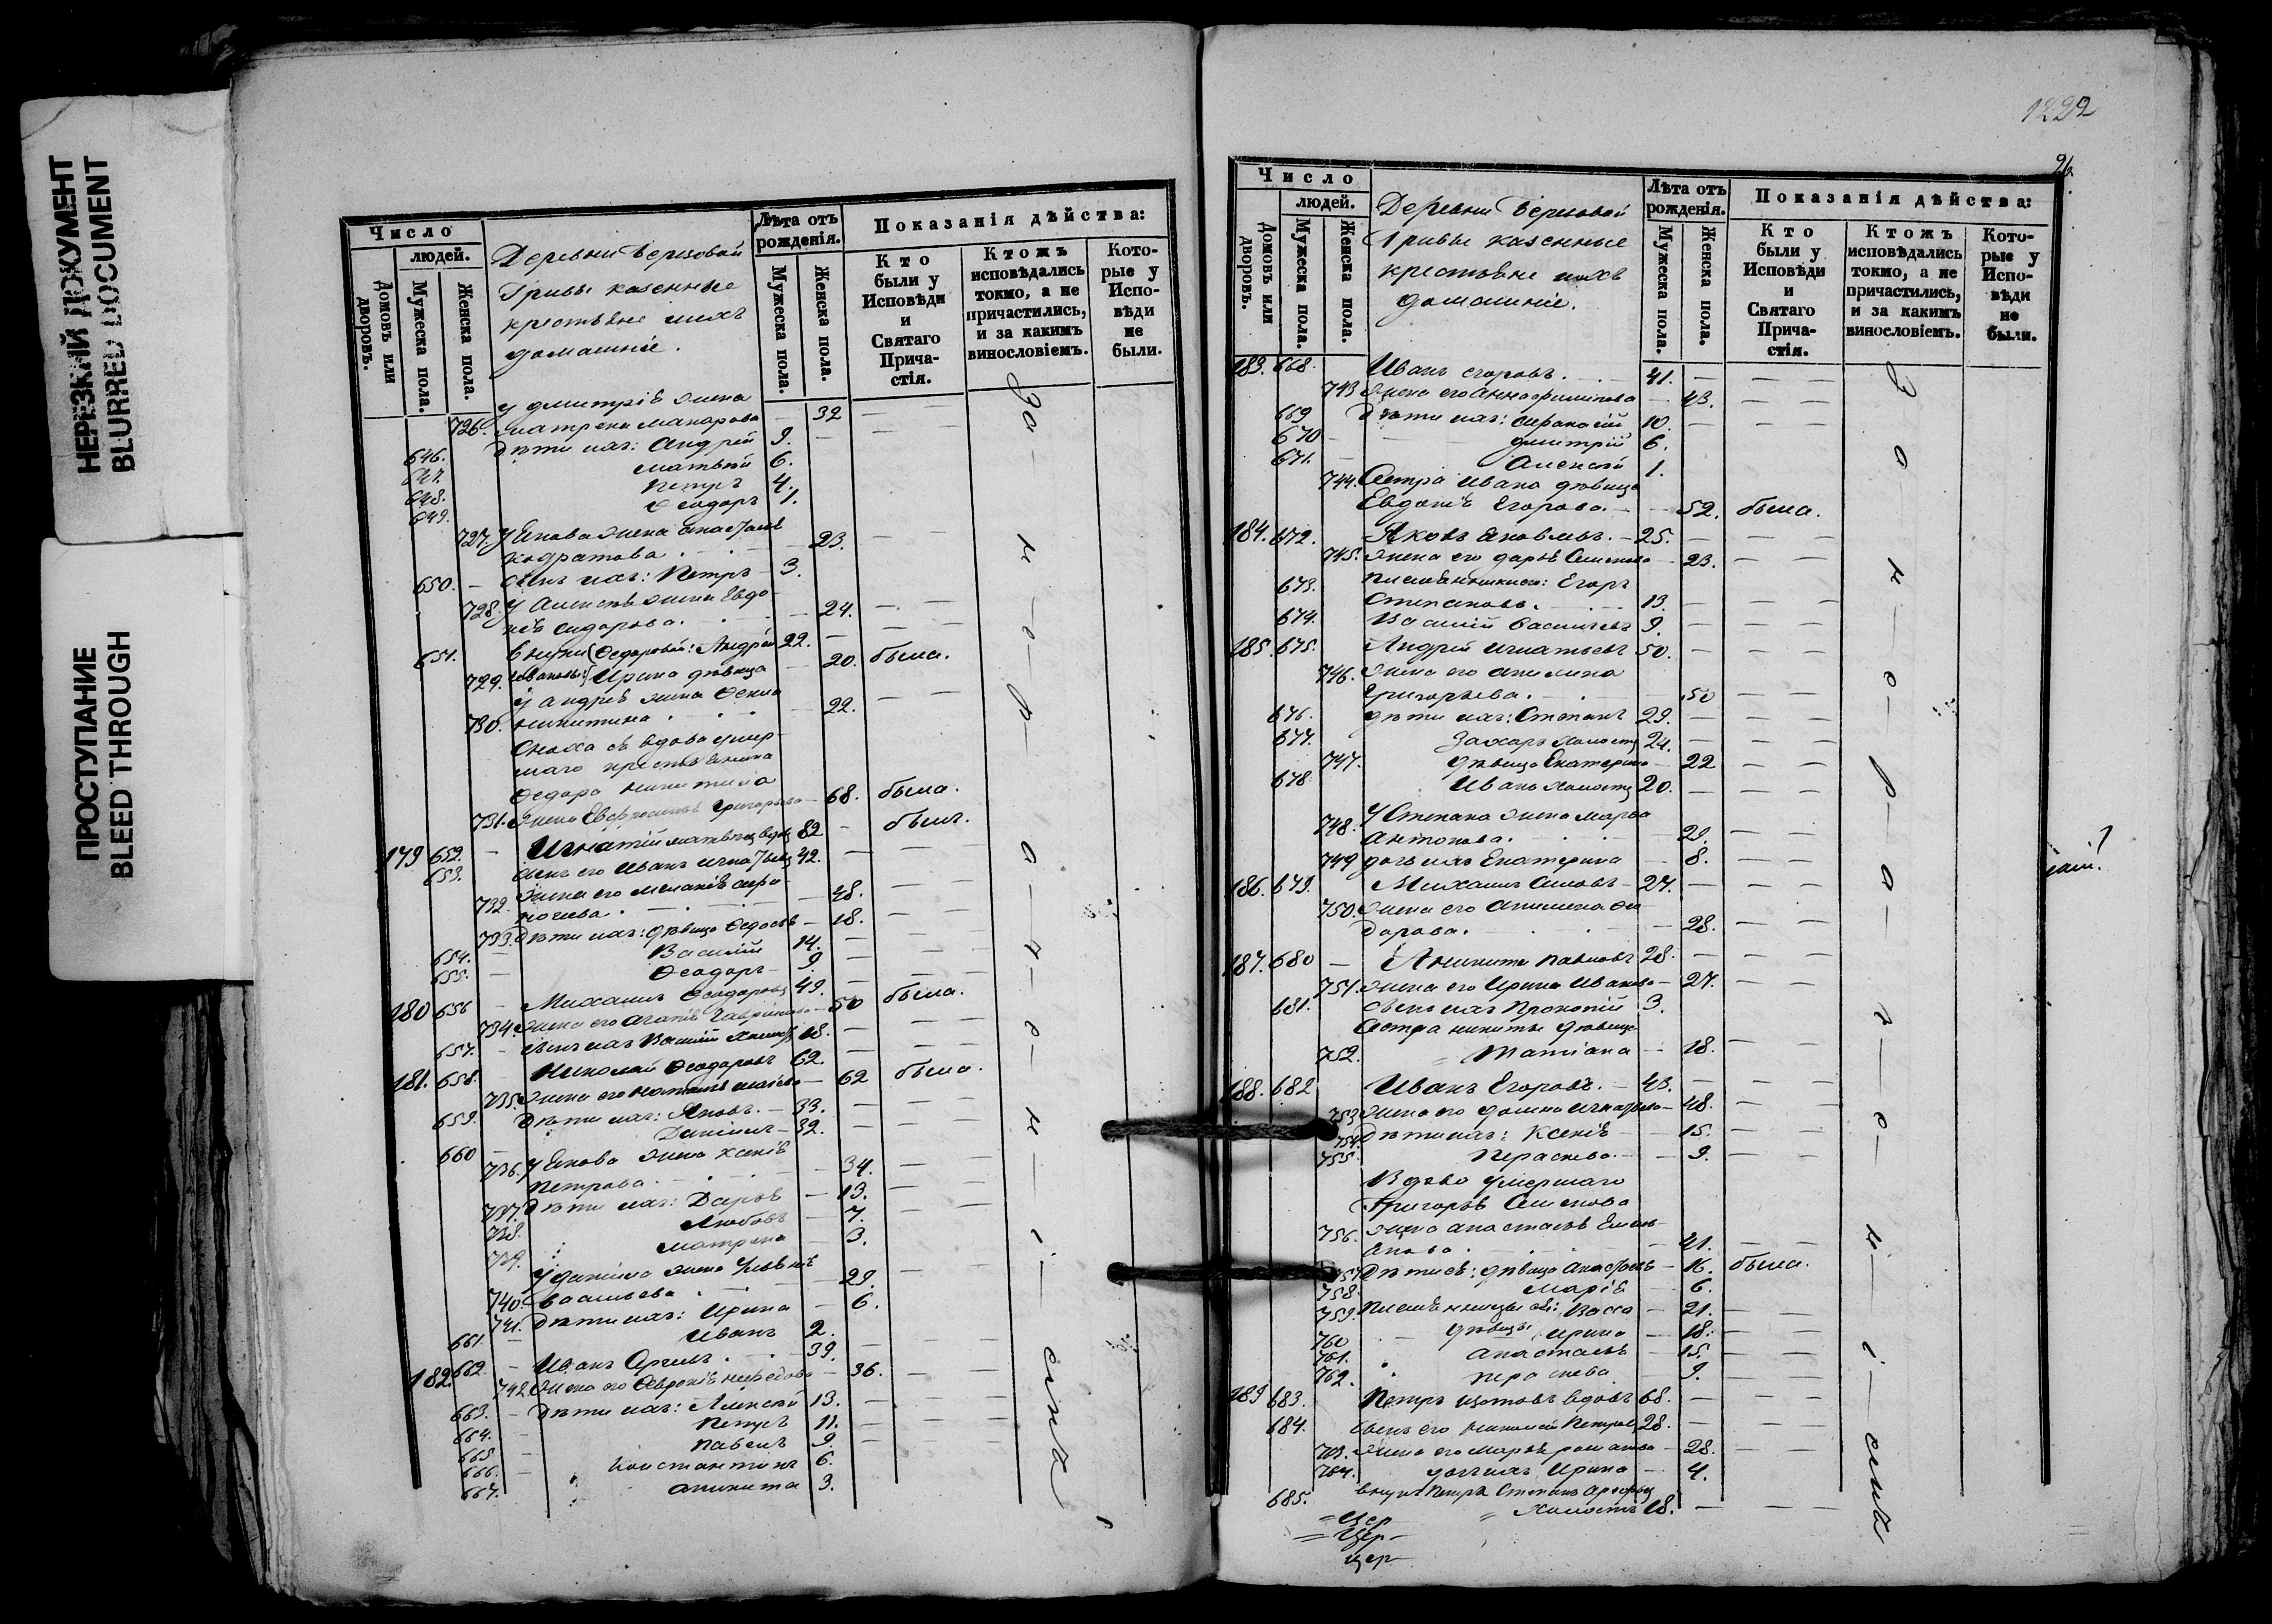 НЕРЕЗКИЙ ДОКУМЕНТ
BLURRED DOCUMENT
ПРОСТУПАНИЕ
BLEED THROUGH
Число
людей.
Домовъ или дворовъ.
Мужеска пола.
Женска пола.
Деревни Березовой
Гривы казенные
крестьяне и ихъ
домашніе.
Лѣта отъ рожденія.
Мужеска пола.
Женска пола.
Показанія дѣйства:
Кто были у Исповѣди и Святаго Причастія.
Ктожъ исповѣдались токмо, а не причастились, и за какимъ винословіемъ.
Которые у Исповѣди не были.
У Дмитрія жена
726. Матрена Макарова 32
646. Дѣти ихъ: Андрей 9.
647. Матвѣй 6.
648. Петръ 4.
649. Ѳеодоръ 1.
727. У Якова жена Анастасія
Кодратова 23.
650. Сынъ ихъ: Петръ 3.
728. У Алексѣя жена Евдо-
кія Сидорова. 24.
651. Внуки Ѳедоровой: Андрей 22.
729. Ивановы Ирина дѣвица 20. была.
У Андрея жена Ѳекла
730. Никитина 22.
Сноха ея вдова умер-
шаго крестьянина
Ѳедора Никитина
731. жена Евфросинья Григорьева 68. была.
179 652. Игнатій Матвѣевъ вдовъ 82 былъ.
653. Сынъ его Иванъ Игнатьевъ 42.
732. Жена его Меланія 48.
733. Дѣти ихъ: дѣвица Ѳедосья 18.
654. Василій 14.
655. Ѳеодоръ 9.
180 656 Михаилъ Ѳеодоровъ 49.
734. Жена его Агапія Гаврилова 50 была.
657. Сынъ ихъ Василій холостъ 18.
181. 658. Николай Ѳеодоровъ 62.
735. Жена его 62 была.
659. Дѣти ихъ: Яковъ 33.
660 Даніилъ 32.
736. У Якова жена Ксенія
Петрова. 34.
737. Дѣти ихъ: Дарья 13.
738. Любовь 7.
739. Матрена 3.
У Даніила жена Ульянія
740. Васильева 29.
741. Дѣти ихъ: Ирина 6.
661. Иванъ 2.
182. 662. Иванъ 39.
742. Жена его Ѳевронія 36.
663. Дѣти ихъ: Алексѣй 13.
664. Петръ 11.
665 Павелъ 9.
666. Константинъ 6.
667. Аникита 3.
1222
96.
Число
людей.
Домовъ или дворовъ.
Мужеска пола.
Женска пола.
Деревни Березовой
Гривы казенные
крестьяне и ихъ
домашніе.
Лѣта отъ рожденія.
Мужеска пола.
Женска пола.
Показанія дѣйства:
Кто были у Исповѣди и Святаго Причастія.
Ктожъ исповѣдались токмо, а не причастились, и за какимъ винословіемъ.
Которые у Исповѣди не были.
183. 668. Иванъ Егоровъ 41.
743 Жена его Анна Филипова 43.
669 Дѣти ихъ: 10.
670 Дмитрій 6.
671. Алексѣй 1.
744. Сестра Ивана дѣвица
Евдокія Егорова 52. была.
184. 672. Яковъ Яковлевъ 25.
745. Жена его Дарья 23.
673. Егоръ
Степановъ 13.
674. Василій Васильевъ 9.
185. 675. Андрей Игнатьевъ 50.
746. Жена его Акилина
Григорьева. 50
676. Дѣти ихъ: Степанъ 29.
677. Захаръ холостъ 24.
747. дѣвица Екатерина 22
678 Иванъ холостъ 20.
748. У Степана жена Марѳа
Антонова. 29.
749 дочь ихъ Екатерина 8.
186. 679. Михаилъ 27.
750. Жена его Акилина Си-
дорова. 28.
187. 680 Аникита Павловъ 28.
751. Жена его Ирина Иванова 27.
681. Сынъ ихъ Прокопій 3.
Сестра Никиты дѣвица
752. Татіана 18.
188. 682 Иванъ Егоровъ 43.
753 Жена его Домна Игнатьева 48.
754. Дѣти ихъ: Ксенія 15.
755. Перасковья 9.
Вдова умершаго
Григорья
756. жена Анастасія Емель-
янова 41.
757 Дѣти ея: дѣвица Анастасія 16. была.
758. Марія 6.
759. Васса 21.
760 дѣвицы Ирина 18.
761. Анастасія 15.
762. 9.
189 683. Петръ вдовъ 68.
684. Сынъ его Николай Петровъ 28.
763. Жена его Марья Романова 28.
764. дочь ихъ Ирина 4.
685. внукъ Петра Степанъ
холостъ 18.